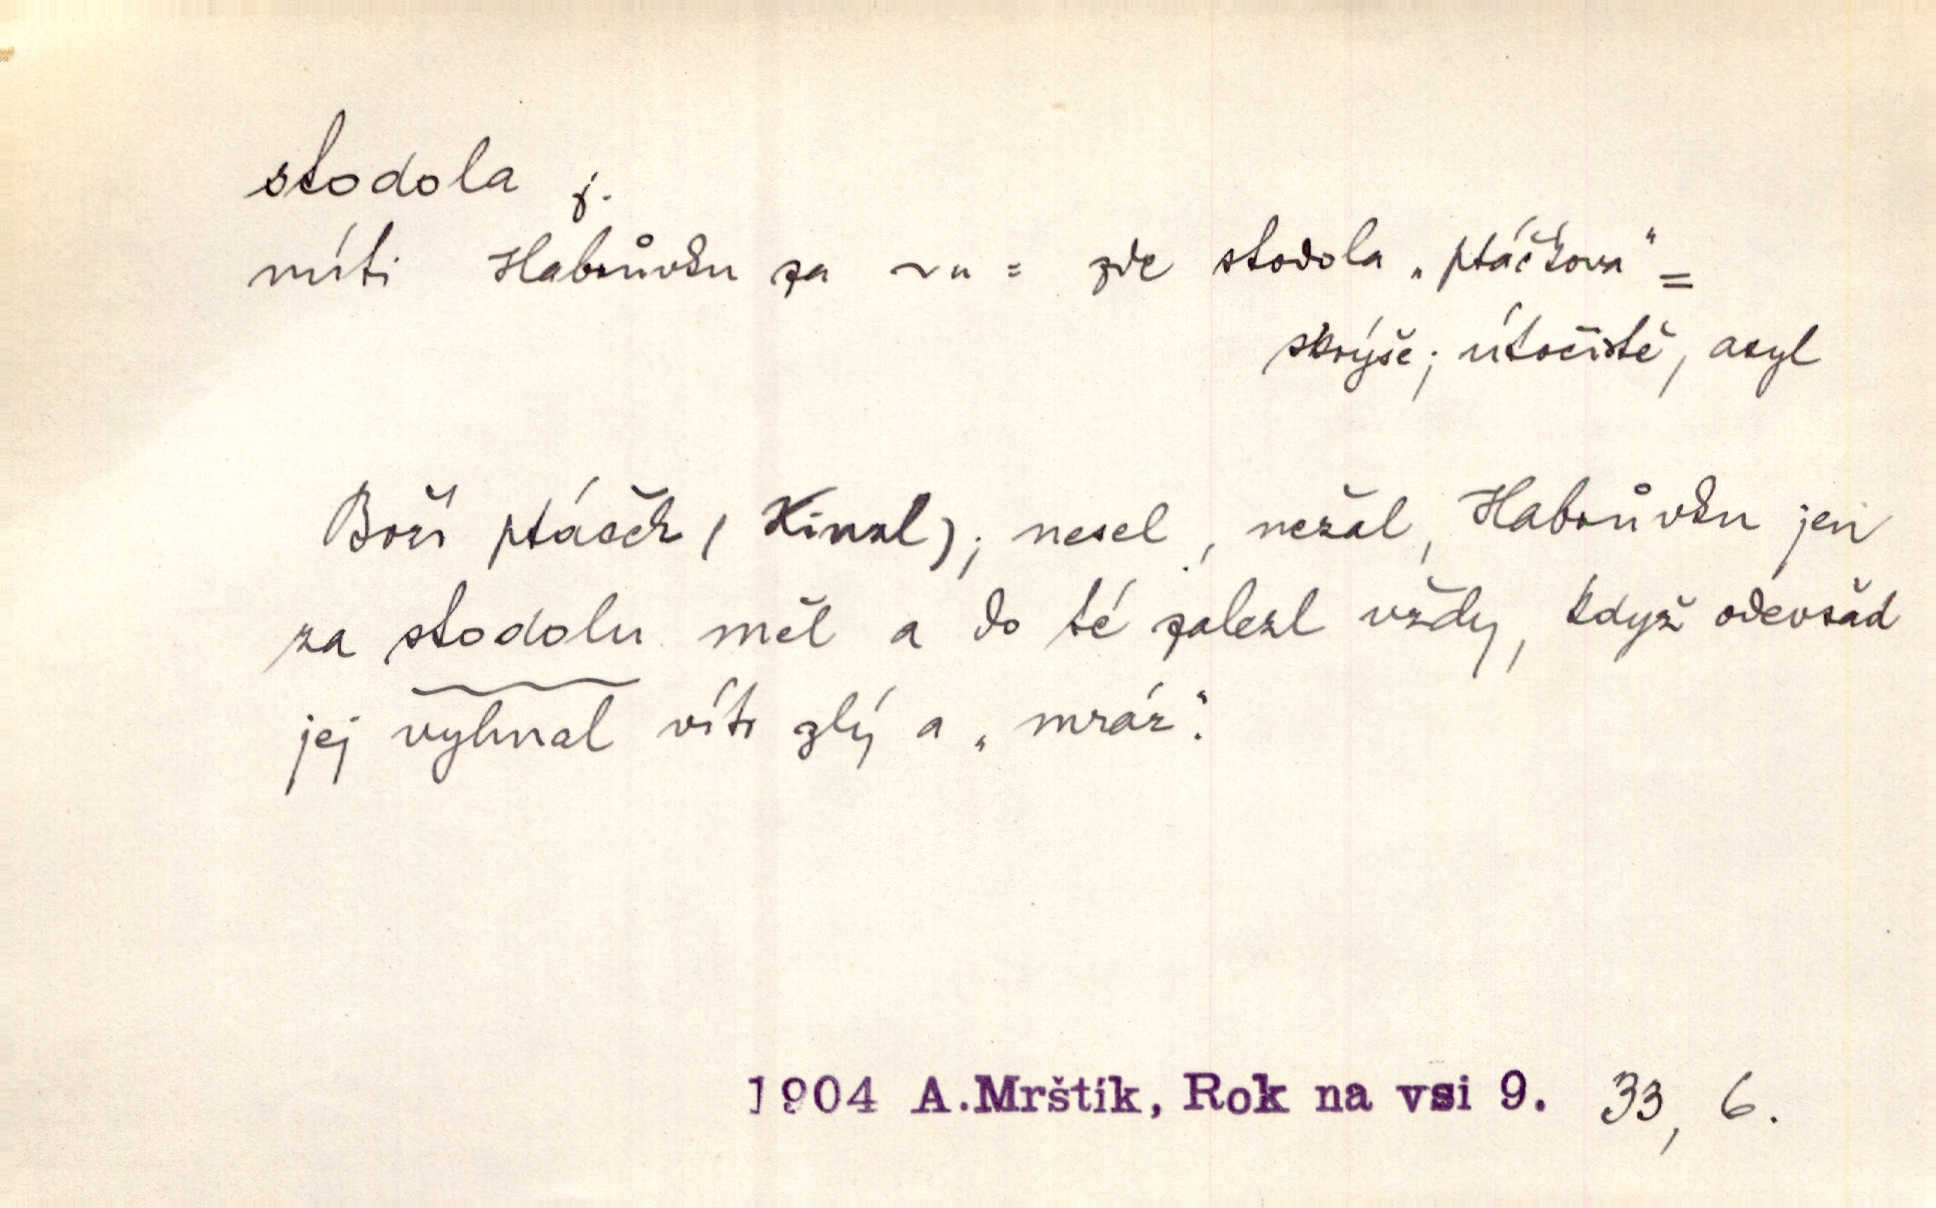 stodola f.
míti Habrůvku za ~u = zde stodola „ptáčkova“ =
skrýše; útočiště, asyl
Boží ptáček (Kinzl); nesel, nežal, Habrůvku jen
za stodolu měl a do té zalezl vždy, když odevšad
jej vyhnal vítr zlý a „mráz“.
1904 A.Mrštík, Rok na vsi 9. 33, 6.